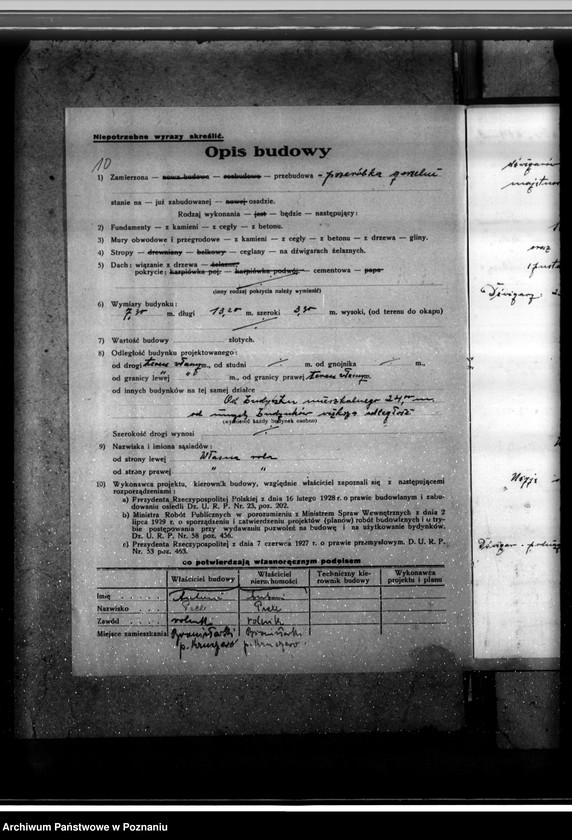 Niepotrzebne wyrazy skreślić.
Opis budowy
10
1) Zamierzona — nowa budowa — rozbudowa — przebudowa - przeróbka
stanie na — już zabudowanej — nowej osadzie.
Rodzaj wykonania — jest — będzie — następujący:
2) Fundamenty — z kamieni — z cegły — z betonu.
3) Mury obwodowe i przegrodowe — z kamieni — z cegły — z betonu — z drzewa — gliny.
4) Stropy — drewniany — belkowy — ceglany — na dźwigarach żelaznych.
5) Dach: wiązanie z drzewa — żelazne,
pokrycie: karpiówka poj. — karpiówka podwój. — cementowa — papa
(inny rodzaj pokrycia należy wymienić)
6) Wymiary budynku:
7,30 m. długi 13,20 m. szeroki 3,30 m. wysoki, (od terenu do okapu)
7) Wartość budowy złotych.
8) Odległość budynku projektowanego:
od drogi teren własny m., od studni m. od gnojnika m.,
od granicy lewej " " m., od granicy prawej teren własny.
od innych budynków na tej samej działce
Od budynku mieszkalnego 24,00 m
od innych budynków większa odległość
(wymienić każdy budynek osobno)
Szerokość drogi wynosi
9) Nazwiska i imiona sąsiadów:
od strony lewej Własna rola
od strony prawej " "
10) Wykonawca projektu, kierownik budowy, względnie właściciel zapoznali się z następującemi
rozporządzeniami:
a) Prezydenta Rzeczypospolitej Polskiej z dnia 16 lutego 1928 r. o prawie budowlanym i zabu-
dowaniu osiedli Dz. U. R. P. Nr. 23, poz. 202.
b) Ministra Robót Publicznych w porozumieniu z Ministrem Spraw Wewnętrznych z dnia 2
lipca 1929 r. o sporządzeniu i zatwierdzeniu projektów (planów) robót budowlanych i w try-
bie postępowania przy wydawaniu pozwoleń na budowę i na użytkowanie budynków.
Dz. U. R. P. Nr. 58 poz. 456.
c) Prezydenta Rzeczypospolitej z dnia 7 czerwca 1927 r. o prawie przemysłowym. D. U. R. P.
Nr. 53 poz. 463.
co potwierdzają własnoręcznym podpisem
Właściciel budowy Właściciel nieruchomości Techniczny kierownik budowy Wykonawca projektu i planu
Imię
Nazwisko
Zawód rolnik rolnik
Miejsce zamieszkania
Archiwum Państwowe w Poznaniu